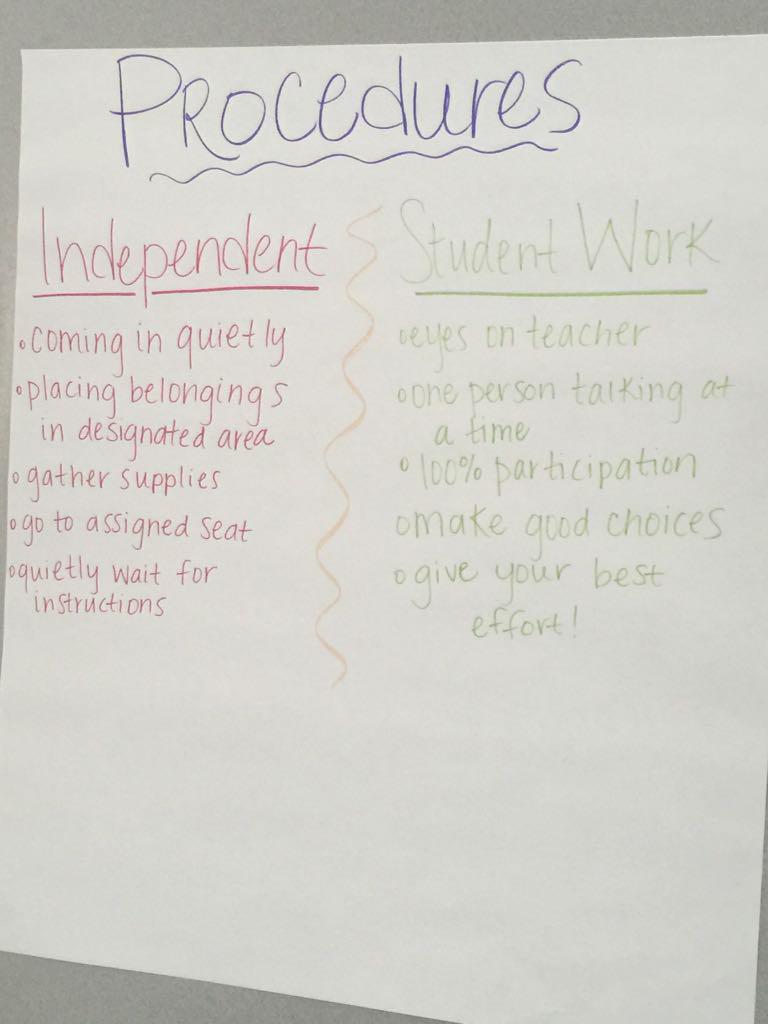 Procedures
Independent
◦coming in quietly
◦placing belongings
in designated area
◦gather supplies
◦go to assigned seat
◦quietly wait for
instructions
Student Work
◦eyes on teacher
◦one person talking at
a time
◦100% participation
◦make good choices
◦give your best
effort!